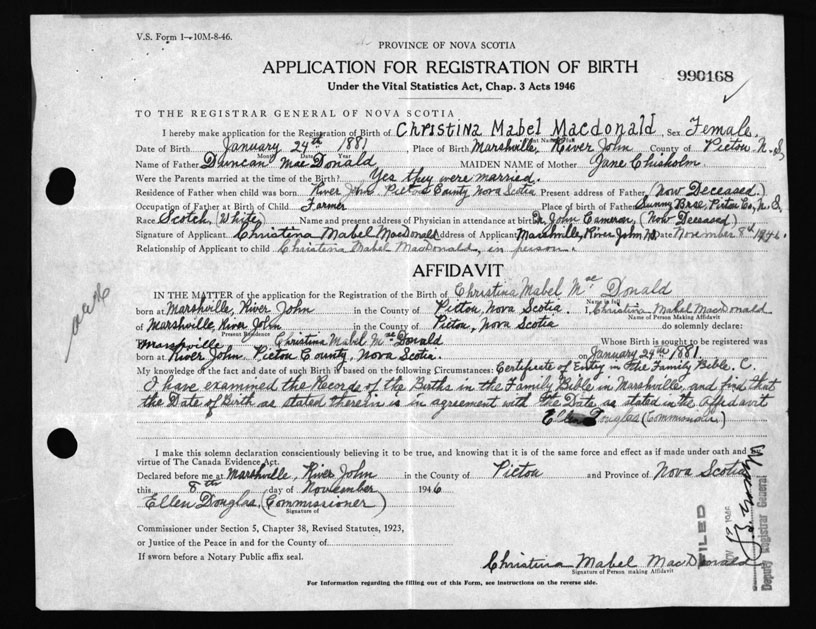 V.S. Form 1—10M-8-46.
PROVINCE OF NOVA SCOTIA
APPLICATION FOR REGISTRATION OF BIRTH
990168
Under the Vital Statistics Act, Chap. 3 Acts 1946
TO THE REGISTRAR GENERAL OF NOVA SCOTIA
I hereby make application for the Registration of Birth of Christina Mabel Macdonald, Sex Female.
Date of Birth January 24th 1881 Place of Birth Marshville, River John County of Pictou N.S.
Month Date Year
Name of Father Duncan MacDonald MAIDEN NAME of Mother Jane Chisholm.
Were the Parents married at the time of Birth? Yes they were married.
Residence of Father when child was born River John Pictou County Nova Scotia Present address of Father (Now Deceased.)
Occupation of Father at Birth of Child Farmer Place of birth of Father Sunny Brae, Pictou Co, N.S
Race Scotch (White) Name and present address of Physician in attendance at birth Dr. John Cameron, (Now Deceased)
Signature of Applicant Christina Mabel MacDonald Address of Applicant Marshville, River John NS Date November 8th 1946.
Relationship of Applicant to child Christina Mabel MacDonald, in person.
AFFIDAVIT
IN THE MATTER of the application for the Registration of the Birth of Christina Mabel McDonald
Name in full
born at Marshville, River John in the County of Pictou, Nova Scotia. I, Christina Mabel MacDonald
Name of Person Making Affidavit
of Marshville, River John in the County of Pictou, Nova Scotia do solemnly declare:
Present Residence
Marshville Christina Mabel McDonald Whose Birth is sought to be registered was
born at River John. Pictou County, Nova Scotia. on January 24th 1881.
My knowledge of the fact and date of such Birth is based on the following Circumstances: Certificate of Entry in the Family Bible. C.
I have examined the Records of the Births in the Family Bible in Marshville, and find that
the Date of Birth as stated therein is in agreement with the Date as stated in the Affidavit
Ellen Douglas (Commissioner)
I make this solemn declaration conscientiously believing it to be true, and knowing that it is of the same force and effect as if made under oath and by
virtue of The Canada Evidence Act.
Declared before me at Marshville, River John in the County of Pictou and Province of Nova Scotia
this 8th day of November 1946
Ellen Douglas, (Commissioner)
Signature of
Commissioner under Section 5, Chapter 38, Revised Statutes, 1923,
or Justice of the Peace in and for the County of
If sworn before a Notary Public affix seal.
Christina Mabel MacDonald
Signature of Person making Affidavit
For Information regarding the filling out of this Form, see instructions on the reverse side.
FILED
Deputy Registrar General